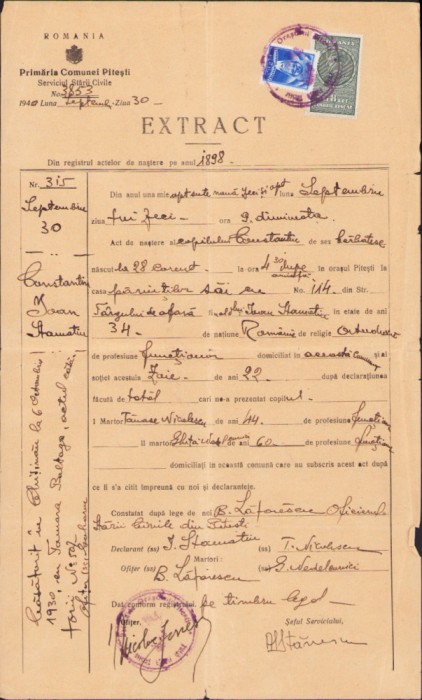 ROMANIA
Primăria Comunei Pitești
Serviciul Stării Civile
No. 3853
1940 Luna Septemv Ziua 30
EXTRACT
Din registrul actelor de naștere pe anul 1898
Nr. 315
Septembrie
30
Constantin
Ioan
Stamatiu
Căsătorit în Chițineu la 6 Octombrie
1930, cu Tamara
Din anul una mie opt sute nouă zeci și opt luna Septembrie
ziua trei zeci ora 9 dimineața
Act de naștere al copilului Constantin de sex bărbătesc
născut la 28 curent la ora 4 30 după amiază în orașul Pitești în
casa părinților săi cu No. 114 din Str.
Târgul de afară fiul lui Ioan Stamatiu în etate de ani
34 de națiune Română de religie ortodoxă
de profesiune funcționar domiciliat în această și al
soției acestuia Zoie de ani 22 după declarațiunea
făcută de tatăl care ne-a prezentat copilul
I Martor Tănase Nicolescu de ani 44 de profesie funcționar
II martor Ghiță de ani 60 de profesie funcționar
domiciliați în această comună care au subscris acest act după
ce li s'a citit împreună cu noi și declarantele.
Constatat după lege de noi B. Lăzărescu Oficierul
stării civile din Pitești
Declarant (ss) I. Stamatiu (ss) T. Nicolescu
Martori:
Ofițer (ss) B. Lăzărescu (ss) G.
Dat conform registrului pe timbru legal
Ofițer, Șeful Serviciului,